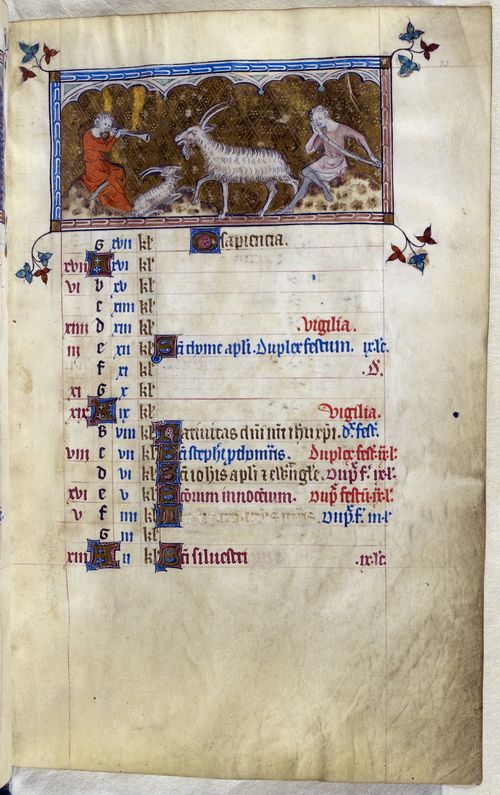 G xvii kl O sapiencia.
xviii A xvi kl
vi b xv kl
c xiiii kl
xiiii d xiii kl vigilia.
iii e xii kl Sci thome apli. Duplex festum. ix. lc.
f xi kl
xi G x kl
xix A ix kl vigilia.
B viii kl Natiuitas dni nri ihu xpi. Dx fest.
viii c vii kl Sci stephi Duplex fest. ix. l.
d vi kl Sci iohis apli z ewngle. Dup. f. ix. l.
xvi e v kl Scorum innocencium. Dup. festu ix. l.
v f iiii kl Dup. f. ix. l.
G iii kl
xiii A ii kl Sci siluestri .ix. lc.